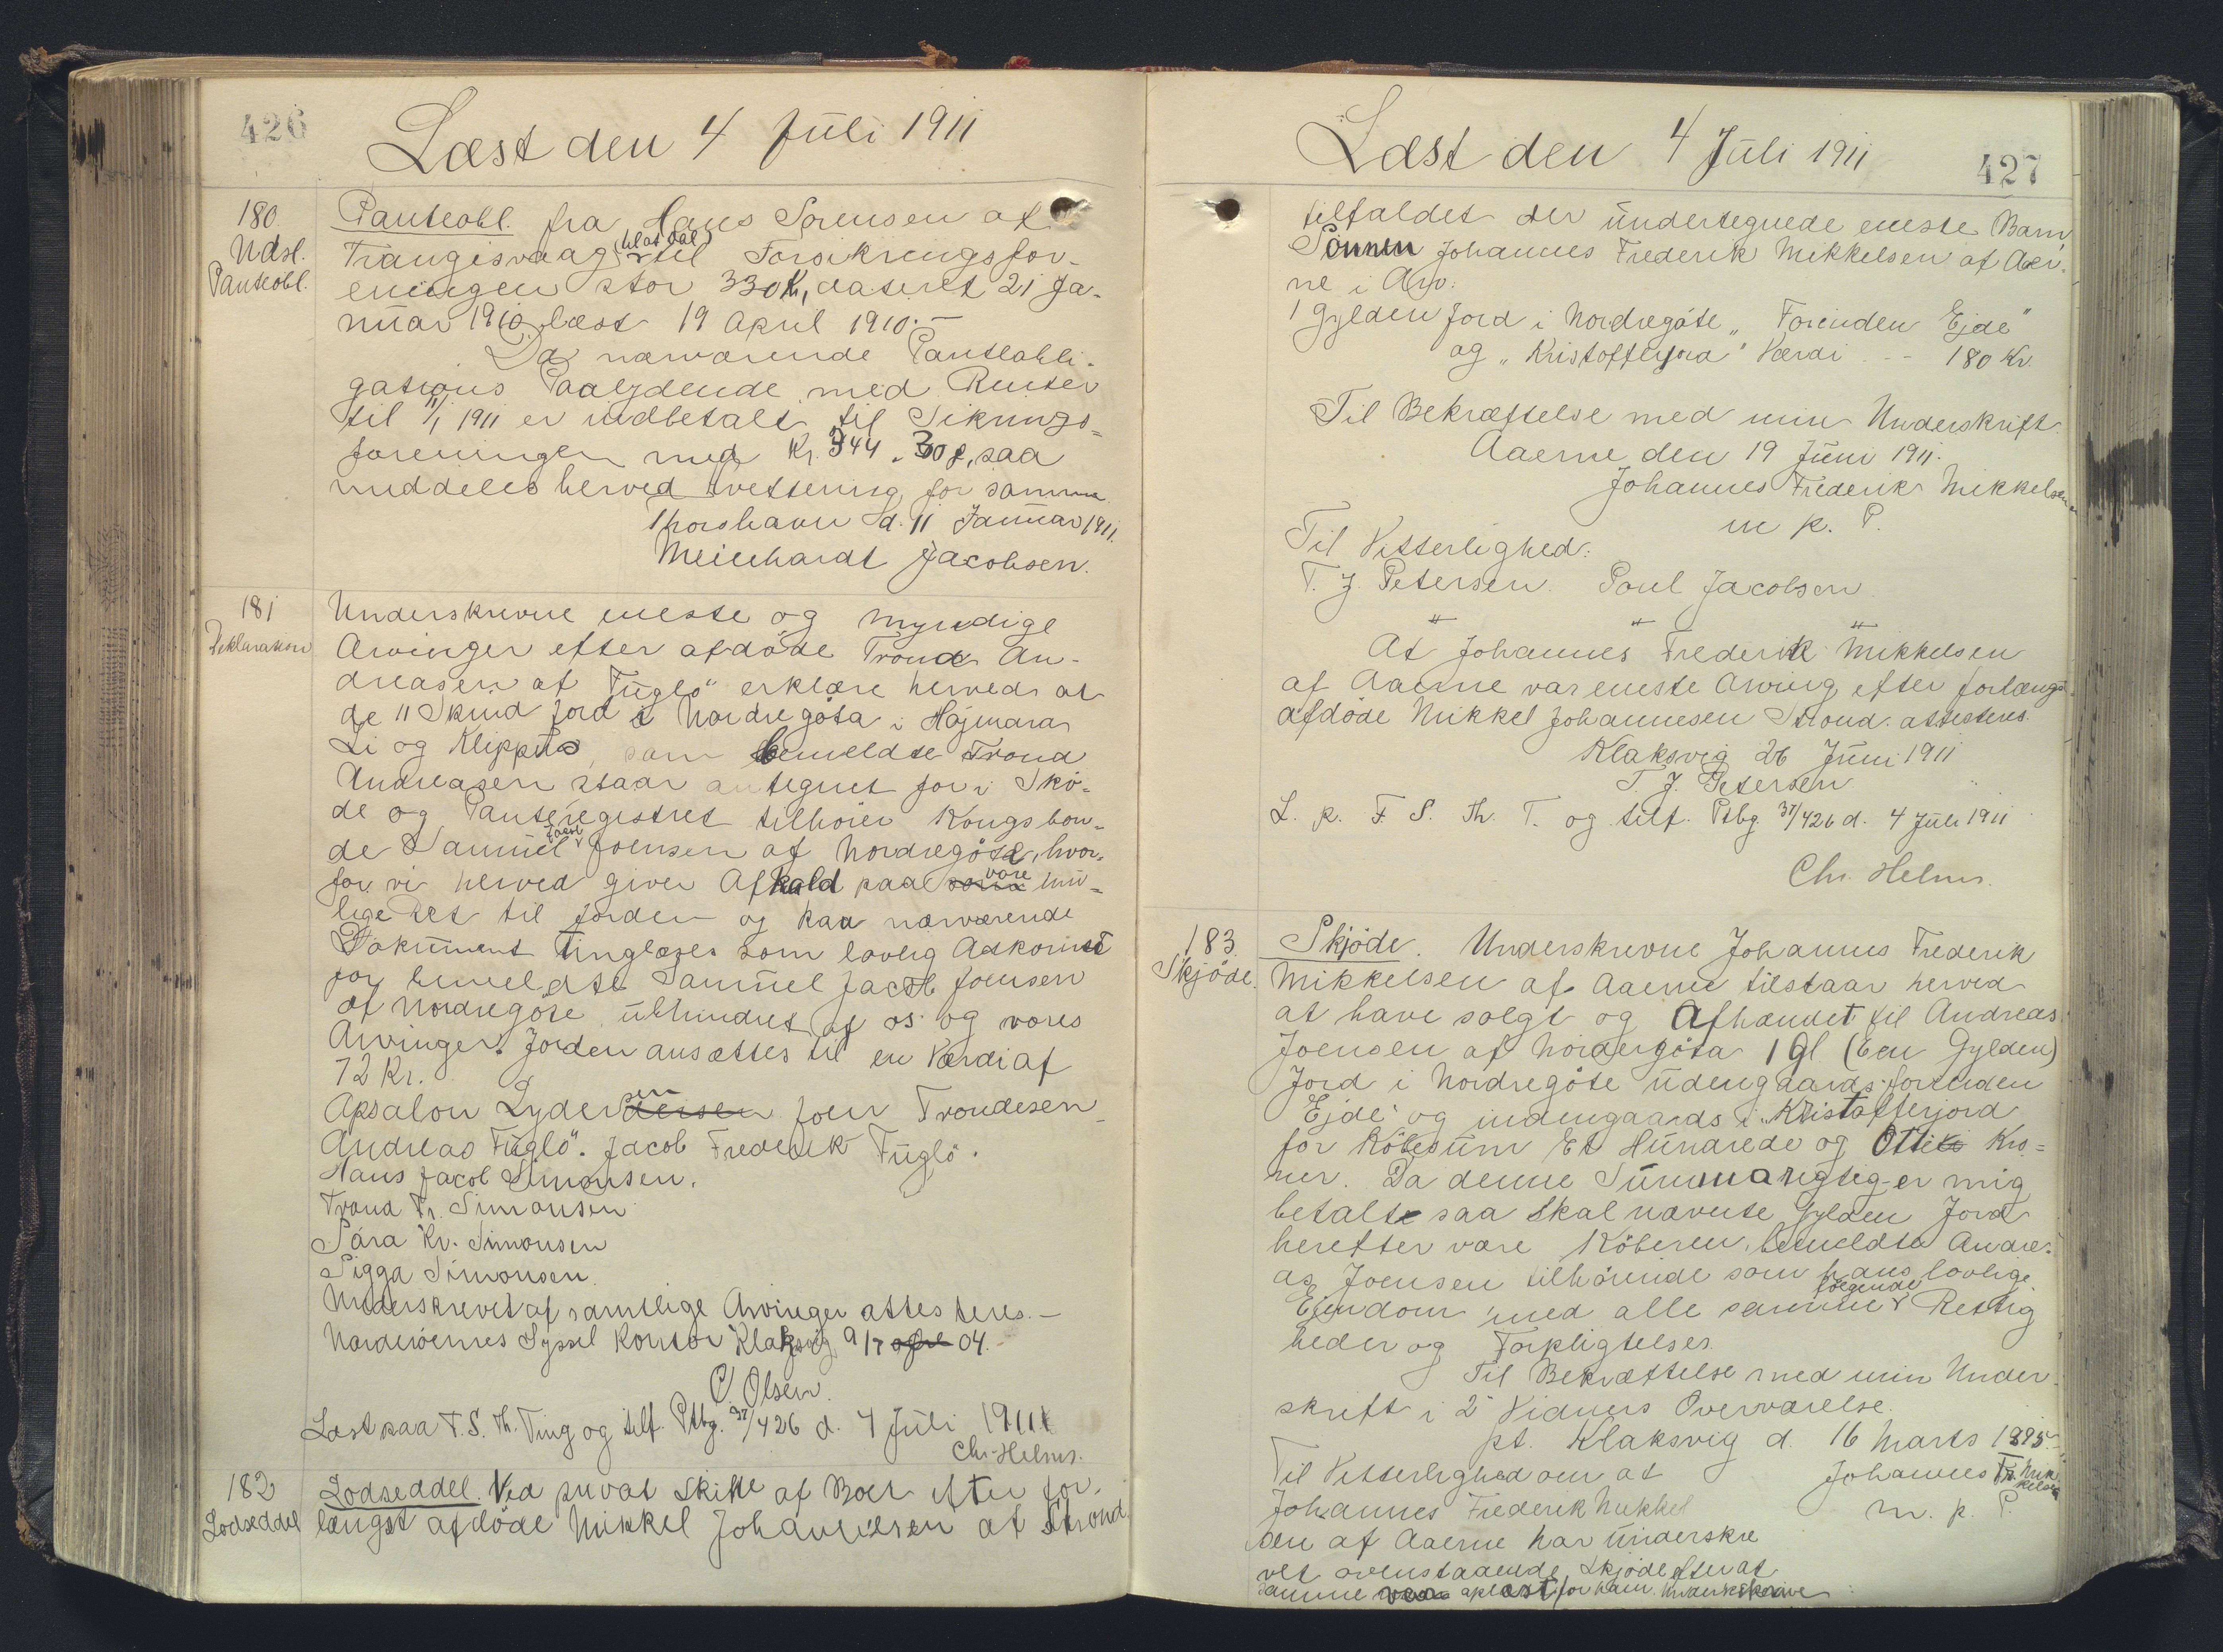 426
Læst den 4 Juli 1911
180
Udsl.
Panteobl.
Panteobl. fra Hans Sørensen af
Trangisvaag til Forsikringsfor-
eningen stor 330 Kr, dateret 21 Ja-
nuar 1910 læst 19 April 1910.—
Da nærværende Panteobli-
gations Paalydende med Renter
til 11/1 1911 er indbetalt til Sikrings-
foreningen med Kr. 344. 30 ø, saa
meddeles herved kvittering for samme
Thorshavn d. 11 Januar 1911.
Meinhardt Jacobsen.
181
Deklaration
Underskrevne eneste og myndige
Arvinger efter afdöde Trond An-
dreasen af Fuglö erklære herved at
de 11 Skind jord i Nordregöta i Højmara
Li og Klippus, som bemeldte Trond
Andreasen staar antegnet for i Skö-
de og Panteregistret tilhöier Kongsbon-
de Samuel Jacob Joensen af Nordregöte, hvor-
for vi herved giver Afkald paa vore mu-
lige Ret til Jorden og kan nærværende
Dokument tinglæses som lovlig Adkomst
for bemeldte Samuel Jacob Joensen
af Nordregöte uhindret af os og vores
Arvinger. Jorden ansættes til en Værdi af
72 Kr.
Absalon Lydersen Joen Trondesen
Andreas Fuglö. Jacob Frederik Fuglö.
Hans Jacob Simonsen.
Trond Fr. Simonsen
Sára Kr. Simonsen
Sigga Simonsen.
Underskrevet af samtlige Arvinger attesteres.—
Norderöernes Syssel Kontor Klaksvig 9/7 04.
C. Olsen.
Læst paa F. S. Th. Ting og tilf. Ptbg. 37/426 d. 4 Juli 1911
Chr. Helms.
182
Lodseddel
Lodseddel. Ved privat Skifte af Boet efter for-
længst afdöde Mikkel Johannesen af Strond
Læst den 4 Juli 1911
427
tilfaldet der undertegnede eneste Barn,
Sönnen Johannes Frederik Mikkelsen af Aer-
ne i Arv:
1 Gylden Jord i Nordregöte "Forinden Ejde"
og "Kristofferjord" Værdi -- 180 Kr.
Til Bekræftelse med min Underskrift
Aaerne den 19 Juni 1911.
Johannes Frederik Mikkelsen
m p. P.
Til Vitterlighed:
T. J. Petersen. Poul Jacobsen
At Johannes Frederik Mikkelsen
af Aaerne var eneste Arving efter forlængst
afdöde Mikkel Johannesen Strond. attesteres.
Klaksvig 26 Juni 1911
T. J. Petersen
L. p. F. S. Th. T. og tilf. Ptbg 37/426 d. 4 Juli 1911
Chr. Helms.
183.
Skjöde.
Skjöde. Underskrevne Johannes Frederik
Mikkelsen af Aaerne tilstaar herved
at have solgt og Afhændet til Andreas
Joensen af Nordregöta 1 Gl (Een Gylden)
Jord i Nordregöte udengaards forinden
Ejde" og indengaards i "Kristofferjord
for Köbesum Et Hundrede og Otti Kro-
ner. Da denne Summa rigtig er mig
betalt saa skal nævnte Gylden Jord
herefter være Köberen, bemeldte Andre-
as Joensen tilhörende som hans lovlige
Ejendom med alle samme fölgende Rettig
heder og Forpligtelser.
Til Bekræftelse med min Under-
skrift i 2 Vidners Overværelse.
pt. Klaksvig d. 16 Marts 1895.
Til Vitterlighed om at Johannes Fr. Mik
kelsen
Johannes Frederik Mikkel m. p. P.
sen af Aaerne har underskre
vet ovenstaaende Skjöde efter at
samme var oplæst for ham. Underskrive